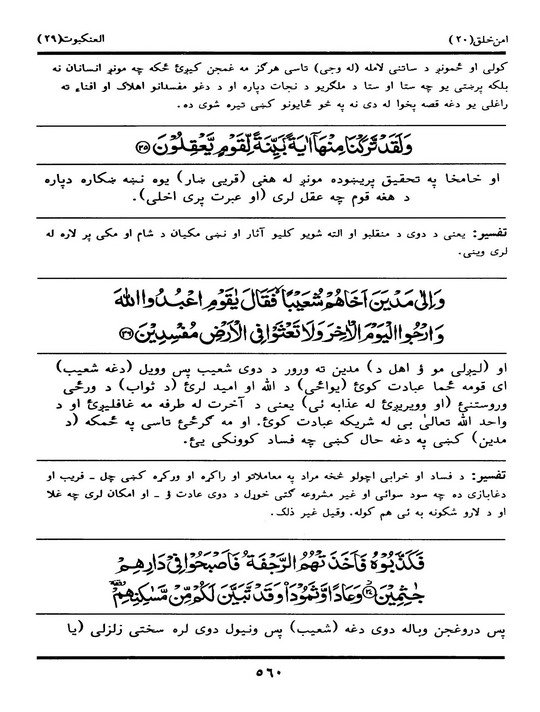 امن خلق (٢٠)
العنكبوت (٢٩)
کولی او ځمونږ د ساتنی لامله (له وجی) تاسی هرگز مه غمجن کیږئ ځکه چه مونږ انسانان نه
بلکه پرښتی یو چه ستا او ستا د ملگریو د نجات دپاره او د دغو مفسدانو اهلاک او افناء ته
راغلی یو دغه قصه پخوا له دی نه په څو ځایونو کښی تیره شوی ده.
وَلَقَدْ تَّرَكْنَا مِنْهَآ اٰيَةًۢ بَيِّنَةً لِّقَوْمٍ يَّعْقِلُوْنَ ﴿٣٥﴾
او خامخا په تحقیق پریښوده مونږ له هغی (قریی ښار) یوه نښه ښکاره دپاره
د هغه قوم چه عقل لری (او عبرت پری اخلی).
تفسیر: یعنی د دوی د منقلبو او الته شویو کلیو آثار او نښی مکیان د شام او مکی پر لاره له
لری وینی.
وَاِلٰى مَدْيَنَ اَخَاهُمْ شُعَيْبًا ۙ فَقَالَ يٰقَوْمِ اعْبُدُوا اللّٰهَ
وَارْجُوا الْيَوْمَ الْاٰخِرَ وَلَا تَعْثَوْا فِى الْاَرْضِ مُفْسِدِيْنَ ﴿٣٦﴾
او (لیږلی مو ؤ اهل د) مدین ته ورور د دوی شعیب پس وویل (دغه شعیب)
ای قومه ځما عبادت کوئ (یواځی) د الله او امید لرئ (د ثواب) د ورځی
وروستنئ (او وویریږئ له عذابه ئی) یعنی د آخرت له طرفه مه غافلیږئ او د
واحد الله تعالیٰ بی له شریکه عبادت کوئ. او مه گرځئ تاسی په ځمکه (د
مدین) کښی په دغه حال کښی چه فساد کوونکی یئ.
تفسیر: د فساد او خرابی اچولو څخه مراد په معاملاتو او راکړه او ورکړه کښی چل ـ فریب او
دغابازی ده چه سود سوائی او غیر مشروعه گټی خوړل د دوی عادت ؤ ـ او امکان لری چه غلا
او د لارو شکونه به ئی هم کوله. وقیل غیر ذلک.
فَكَذَّبُوْهُ فَاَخَذَتْهُمُ الرَّجْفَةُ فَاَصْبَحُوْا فِىْ دَارِهِمْ
جٰثِمِيْنَ ﴿٣٧﴾ وَعَادًا وَّثَمُوْدَا۟ وَقَدْ تَّبَيَّنَ لَكُمْ مِّنْ مَّسٰكِنِهِمْ
پس دروغجن وباله دوی دغه (شعیب) پس ونیول دوی لره سختی زلزلی (یا
٥٦٠